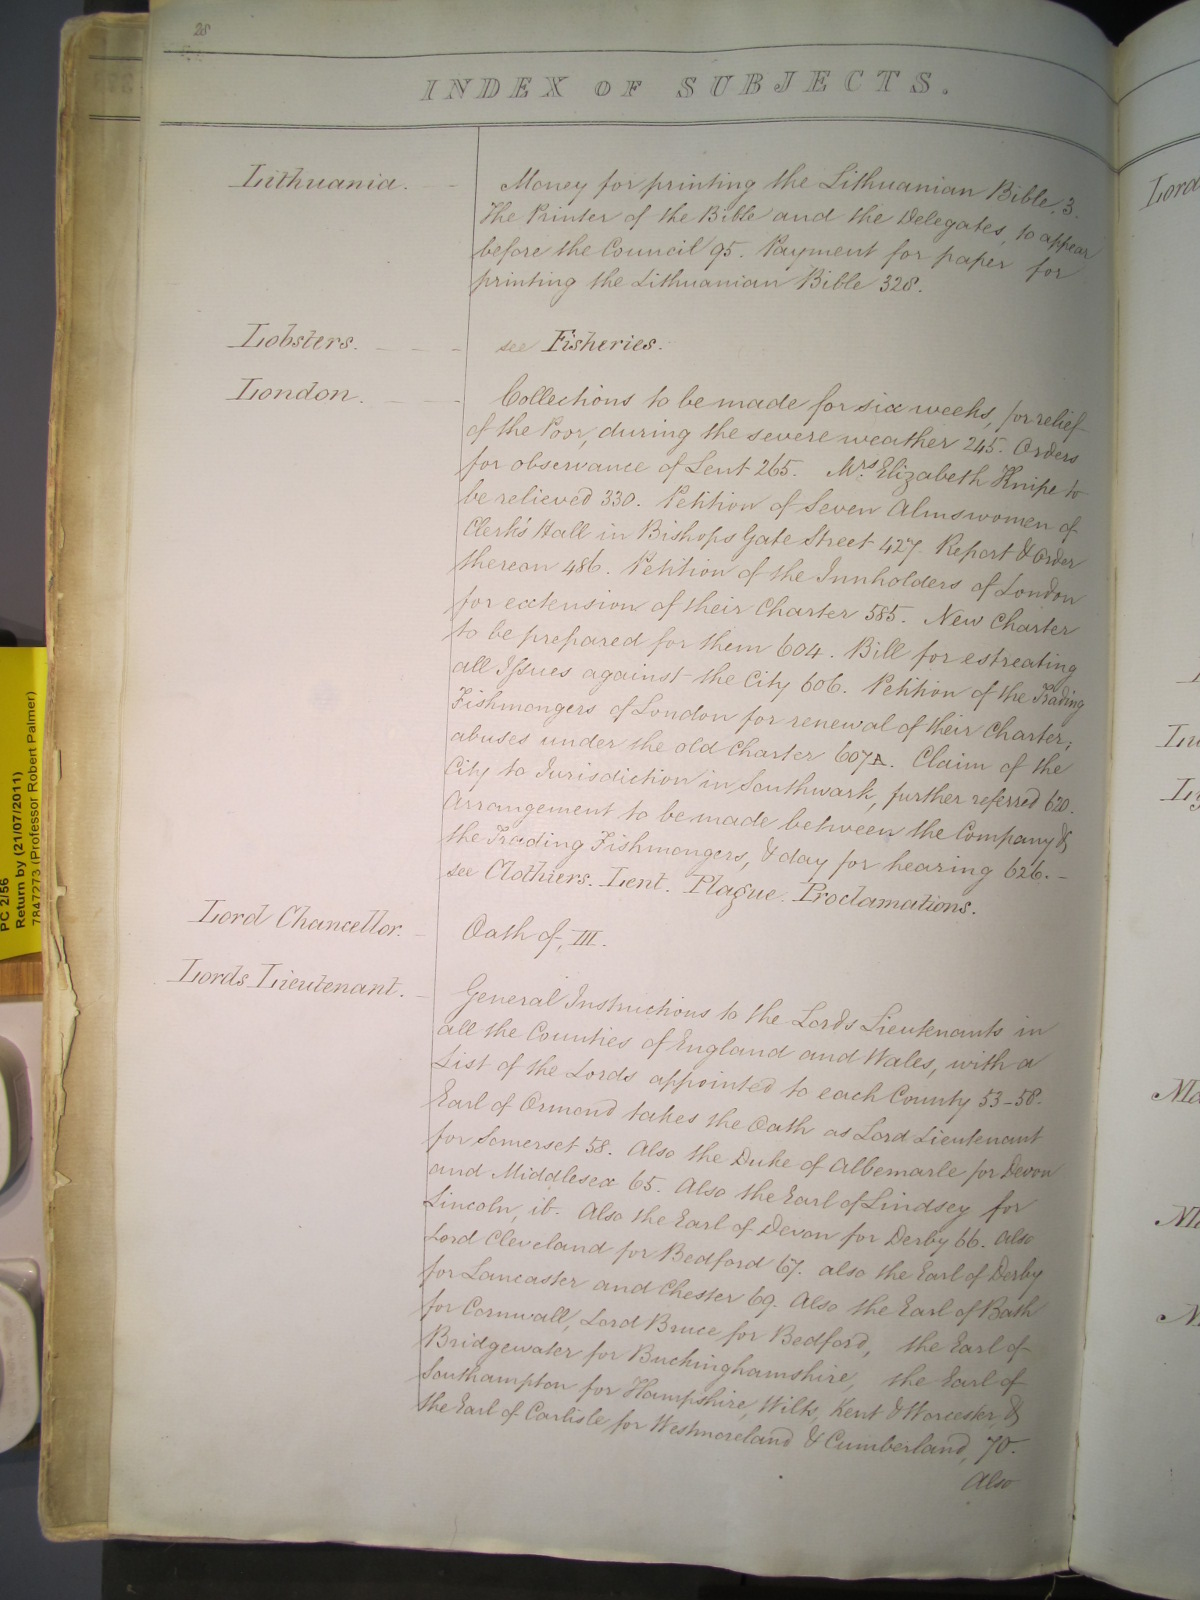 28
INDEX OF SUBJECTS.
Lithuania.
Money for printing the Lithuanian Bible, 3.
The Printer of the Bible and the Delegates, to appear
before the Council 95. Payment for paper for
printing the Lithuanian Bible 328.
Lobsters.
see Fisheries.
London.
Collections to be made for six weeks, for relief
of the Poor, during the severe weather 245. Orders
for observance of Lent 265. Mrs. Elizabeth Knipe to
be relieved 330. Petition of Seven Almswomen of
Clerk's Hall in Bishops Gate Street 427. Report & Order
thereon 486. Petition of the Innholders of London
for extension of their Charter 585. New Charter
to be prepared for them 604. Bill for estreating
all Issues against the City 606. Petition of the Trading
Fishmongers of London for renewal of their Charter;
abuses under the old Charter 607A. Claim of the
City to Jurisdiction in Southwark, further referred 620.
Arrangement to be made between the Company &
the Trading Fishmongers, & day for hearing 626. -
see Clothiers. Lent. Plague. Proclamations.
Lord Chancellor.
Oath of, III.
Lords Lieutenant.
General Instructions to the Lords Lieutenants in
all the Counties of England and Wales, with a
List of the Lords appointed to each County 53-58.
Earl of Ormond takes the Oath as Lord Lieutenant
for Somerset 58. Also the Duke of Albemarle for Devon
and Middlesex 65. Also the Earl of Lindsey for
Lincoln, ib. Also the Earl of Devon for Derby 66. also
Lord Cleveland for Bedford 67. also the Earl of Derby
for Lancaster and Chester 69. Also the Earl of Bath
for Cornwall, Lord Bruce for Bedford, the Earl of
Bridgewater for Buckinghamshire, the Earl of
Southampton for Hampshire, Wilts, Kent & Worcester, &
the Earl of Carlisle for Westmoreland & Cumberland, 70.
Also
PC 2/56
Return by (21/07/2011)
7847273 (Professor Robert Palmer)
Lord